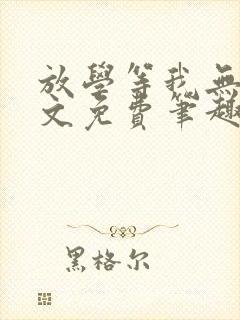 放學等我無
文免費筆趣
黑格尔